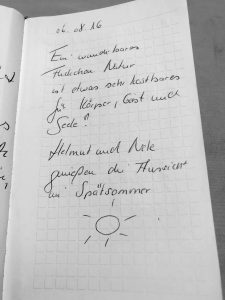 06.08.16
Ein wunderbares
Fleckchen Natur
ist etwas sehr kostbares
für Körper, Geist und
Seele!
Helmut und Nele
genießen die Aussicht
im Spätsommer